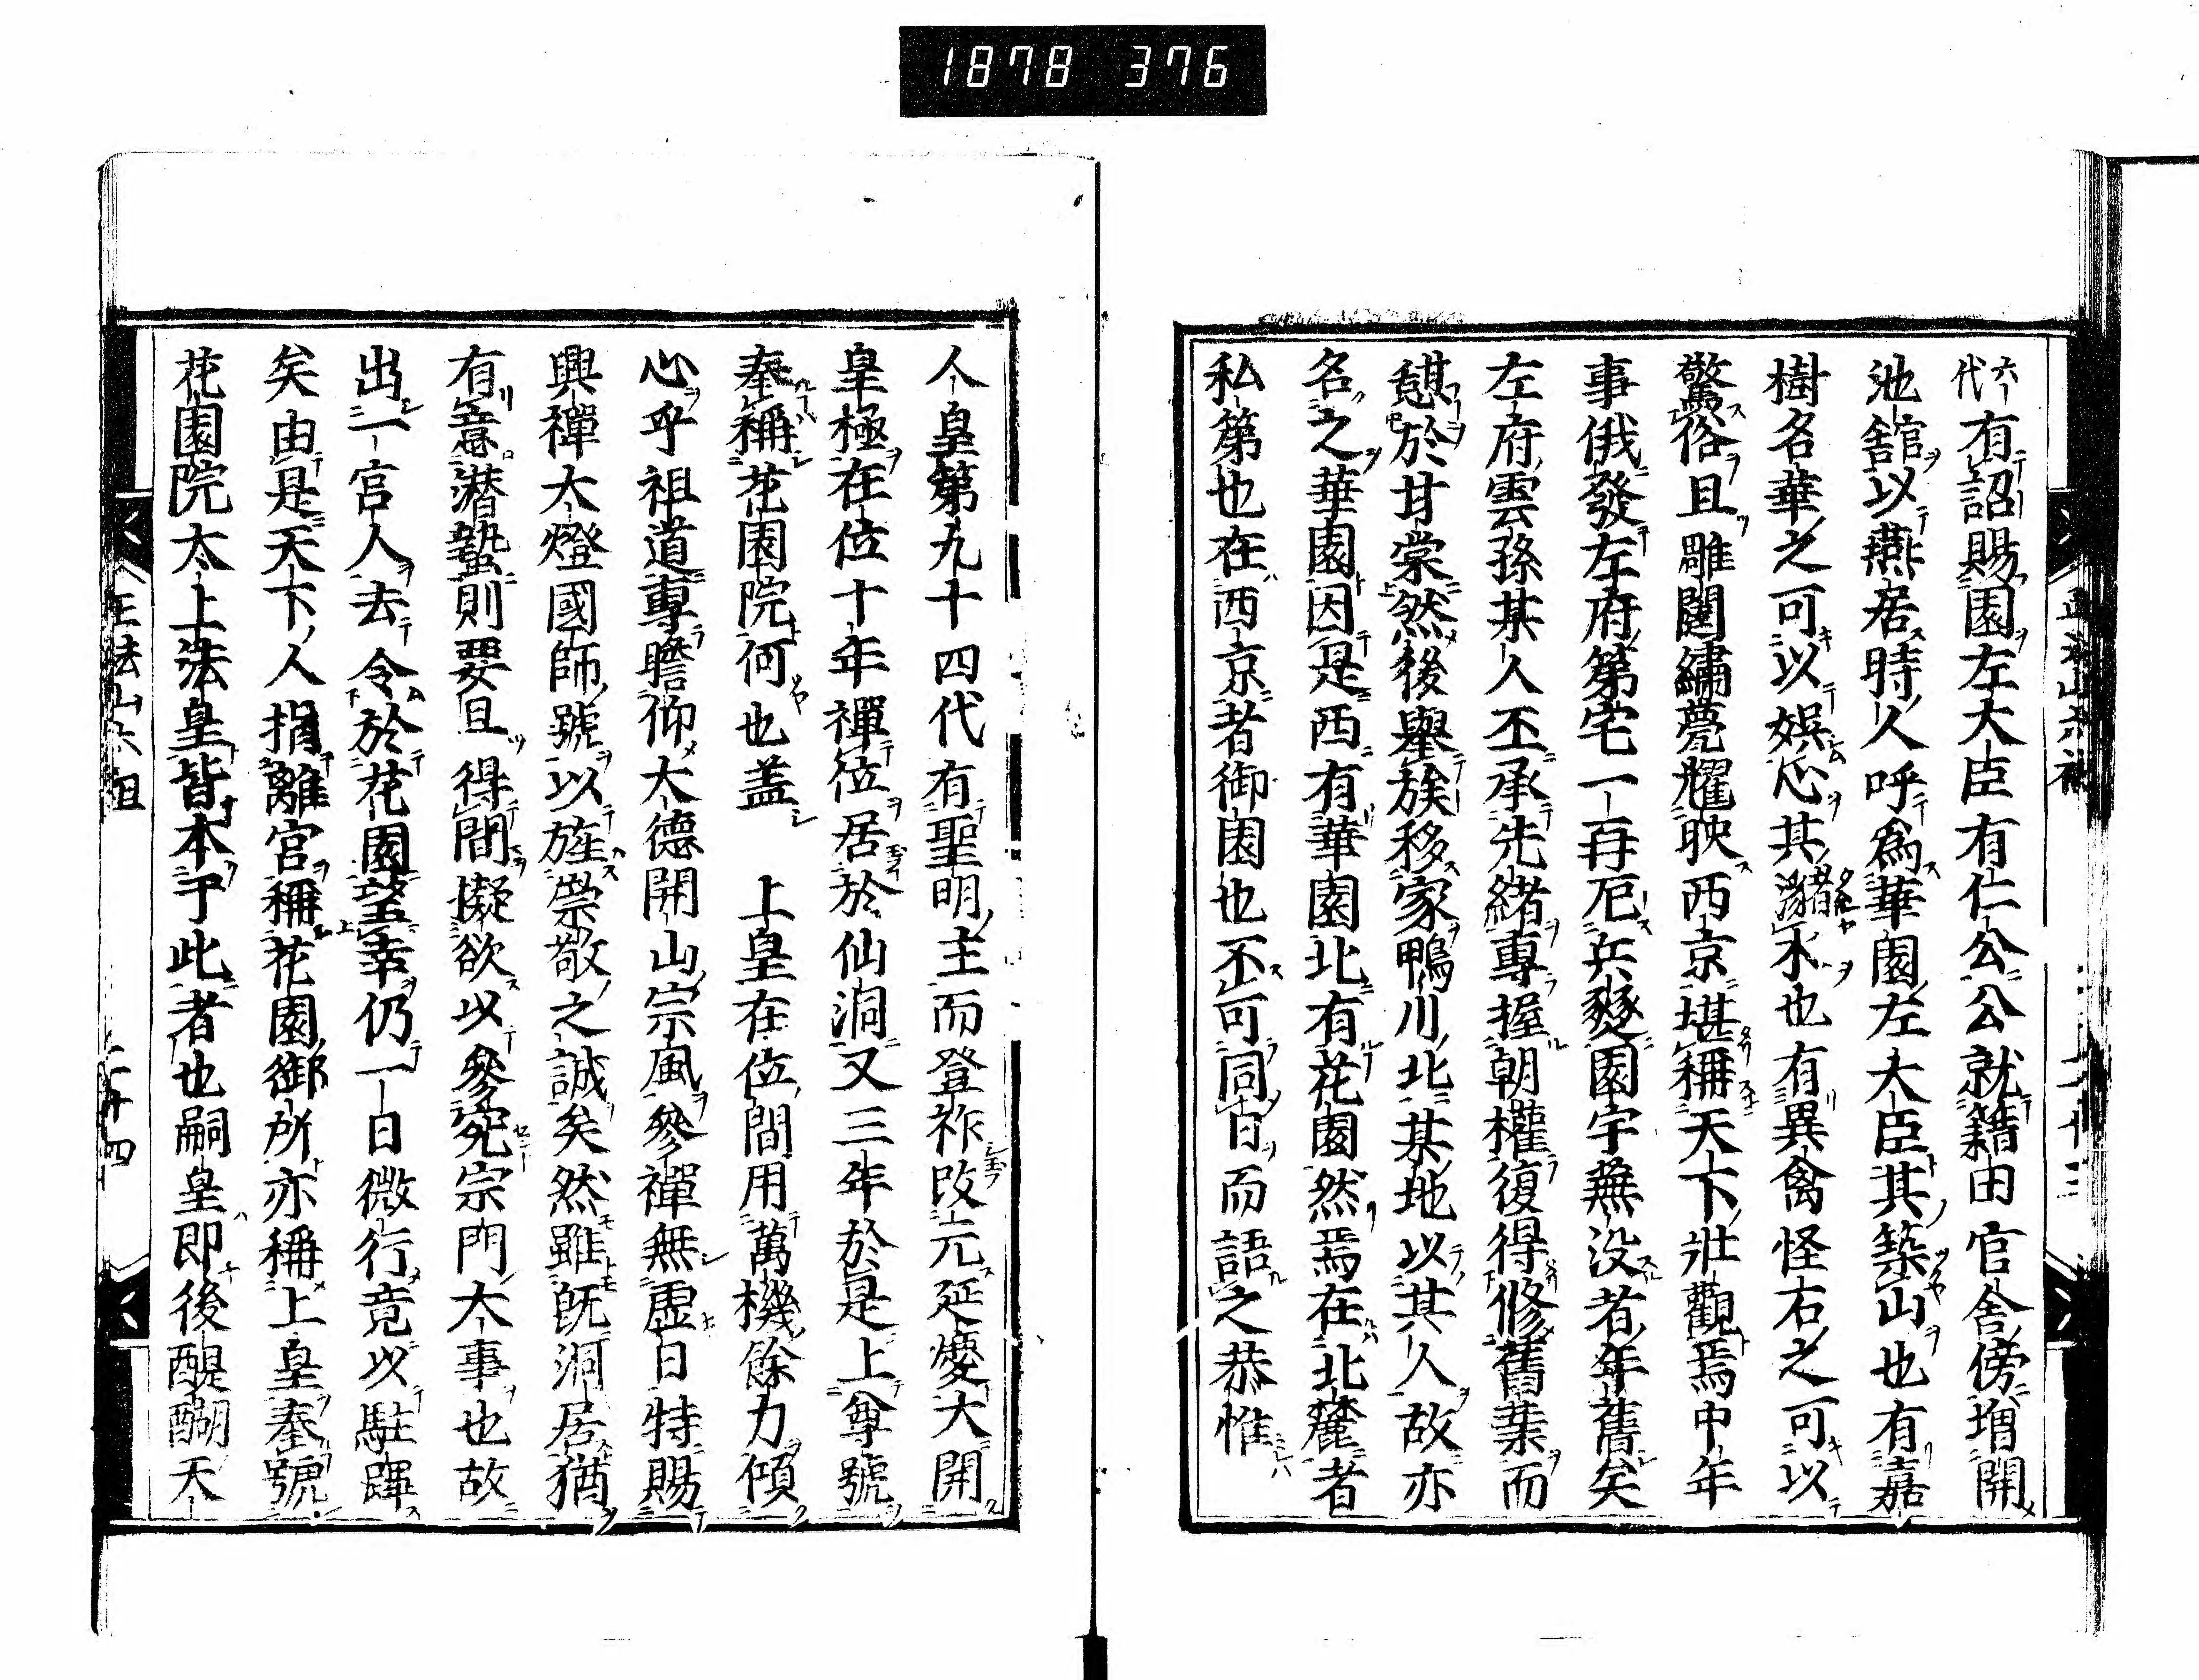 1878 376
六代有詔賜園左大臣有仁公公就籍田官舍傍増開
池舘以燕居時人呼為華園左大臣其築山也有嘉
樹名華之可以娯心其瀦水也有異禽怪石之可以
驚俗且雕闥繡甍耀映西京堪稱天下壯觀焉中年
事俄發左府第宅一再厄兵燹園宇蕪没者年舊矣
左府雲孫某人丕承先緒專握朝權復得修舊葉而
憇於甘棠然後舉族移家鴨川北某地以其人故亦
名之華園因是西有華園北有花園然焉在北麓者
私第也在西京者御園也不可同日而語之恭惟
人皇第九十四代有聖明主而登祚改元延慶大開
皇極在位十年禪位居於仙洞又三年於是上尊號
奉稱花園院何也盖 上皇在位間用萬機餘力傾
心乎祖道專瞻仰大德開山宗風參禪無虚日特賜
興禪大燈國師號以旌崇敬之誠矣然雖既洞居猶
有意潜蟄則要且得間擬欲以參究宗門大事也故
出一宮人去令於花園望幸仍一日微行竟以駐蹕
矣由是天下人捐離宮稱花園御所亦稱上皇奉號
花園院太上法皇皆本乎此者也嗣皇即後醍醐天
正法山六祖
二十四